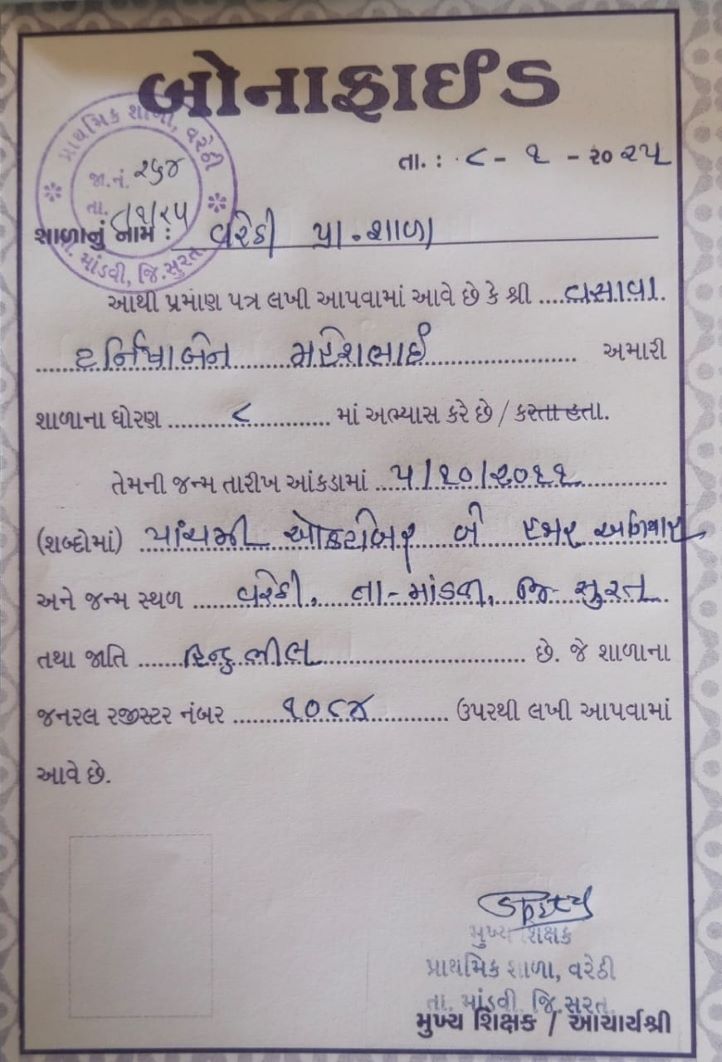 બોનાફાઈડ
પ્રાથમિક શાળા, વરેઠી
જા.નં. ૨૫૪
તા. ૮/૧/૨૫
તા. માંડવી, જિ.સુરત.
તા. : ૮ - ૧ - ૨૦૨૫
શાળાનું નામ : વરેઠી પ્રા.શાળા
આથી પ્રમાણ પત્ર લખી આપવામાં આવે છે કે શ્રી ....વસાવા.
બેન મહેશભાઈ અમારી
શાળાના ધોરણ ..........૮............ માં અભ્યાસ કરે છે / કરતા હતા.
તેમની જન્મ તારીખ આંકડામાં ...૫/૧૦/૨૦૧૧............
(શબ્દોમાં) પાંચમી ઓકટોબર બે હજાર અગિયાર
અને જન્મ સ્થળ ......વરેઠી, તા-માંડવી, જિ-સુરત..
તથા જાતિ ......હિન્દુ ભીલ...................... છે. જે શાળાના
જનરલ રજીસ્ટર નંબર .......૧૦૮૪.......... ઉપરથી લખી આપવામાં
આવે છે.
મુખ્ય શિક્ષક
પ્રાથમિક શાળા, વરેઠી
તા. માંડવી, જિ.સુરત.
મુખ્ય શિક્ષક / આચાર્યશ્રી